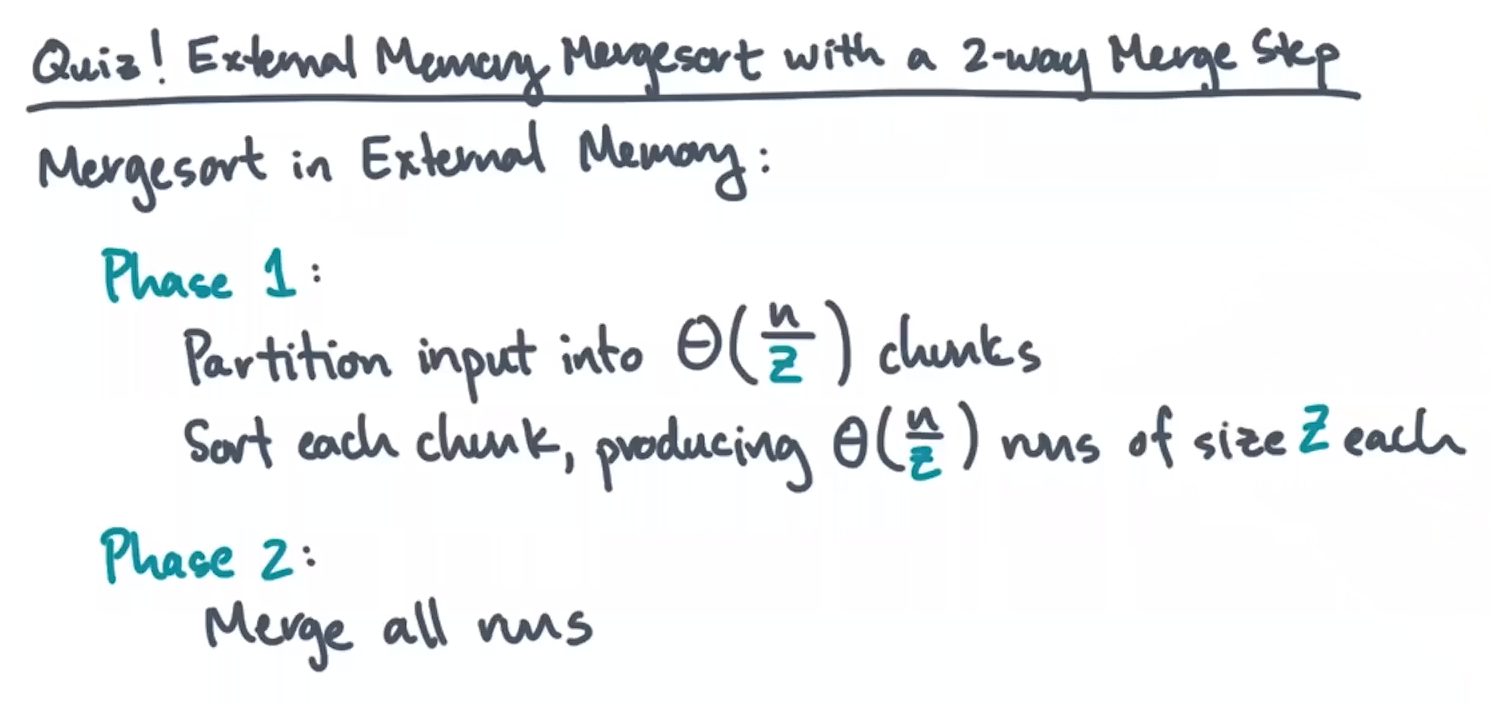 Quiz! External Memory Mergesort with a 2-way Merge Step
Mergesort in External Memory:
Phase 1:
Partition input into Θ(n/Z) chunks
Sort each chunk, producing Θ(n/Z) runs of size Z each
Phase 2:
Merge all runs